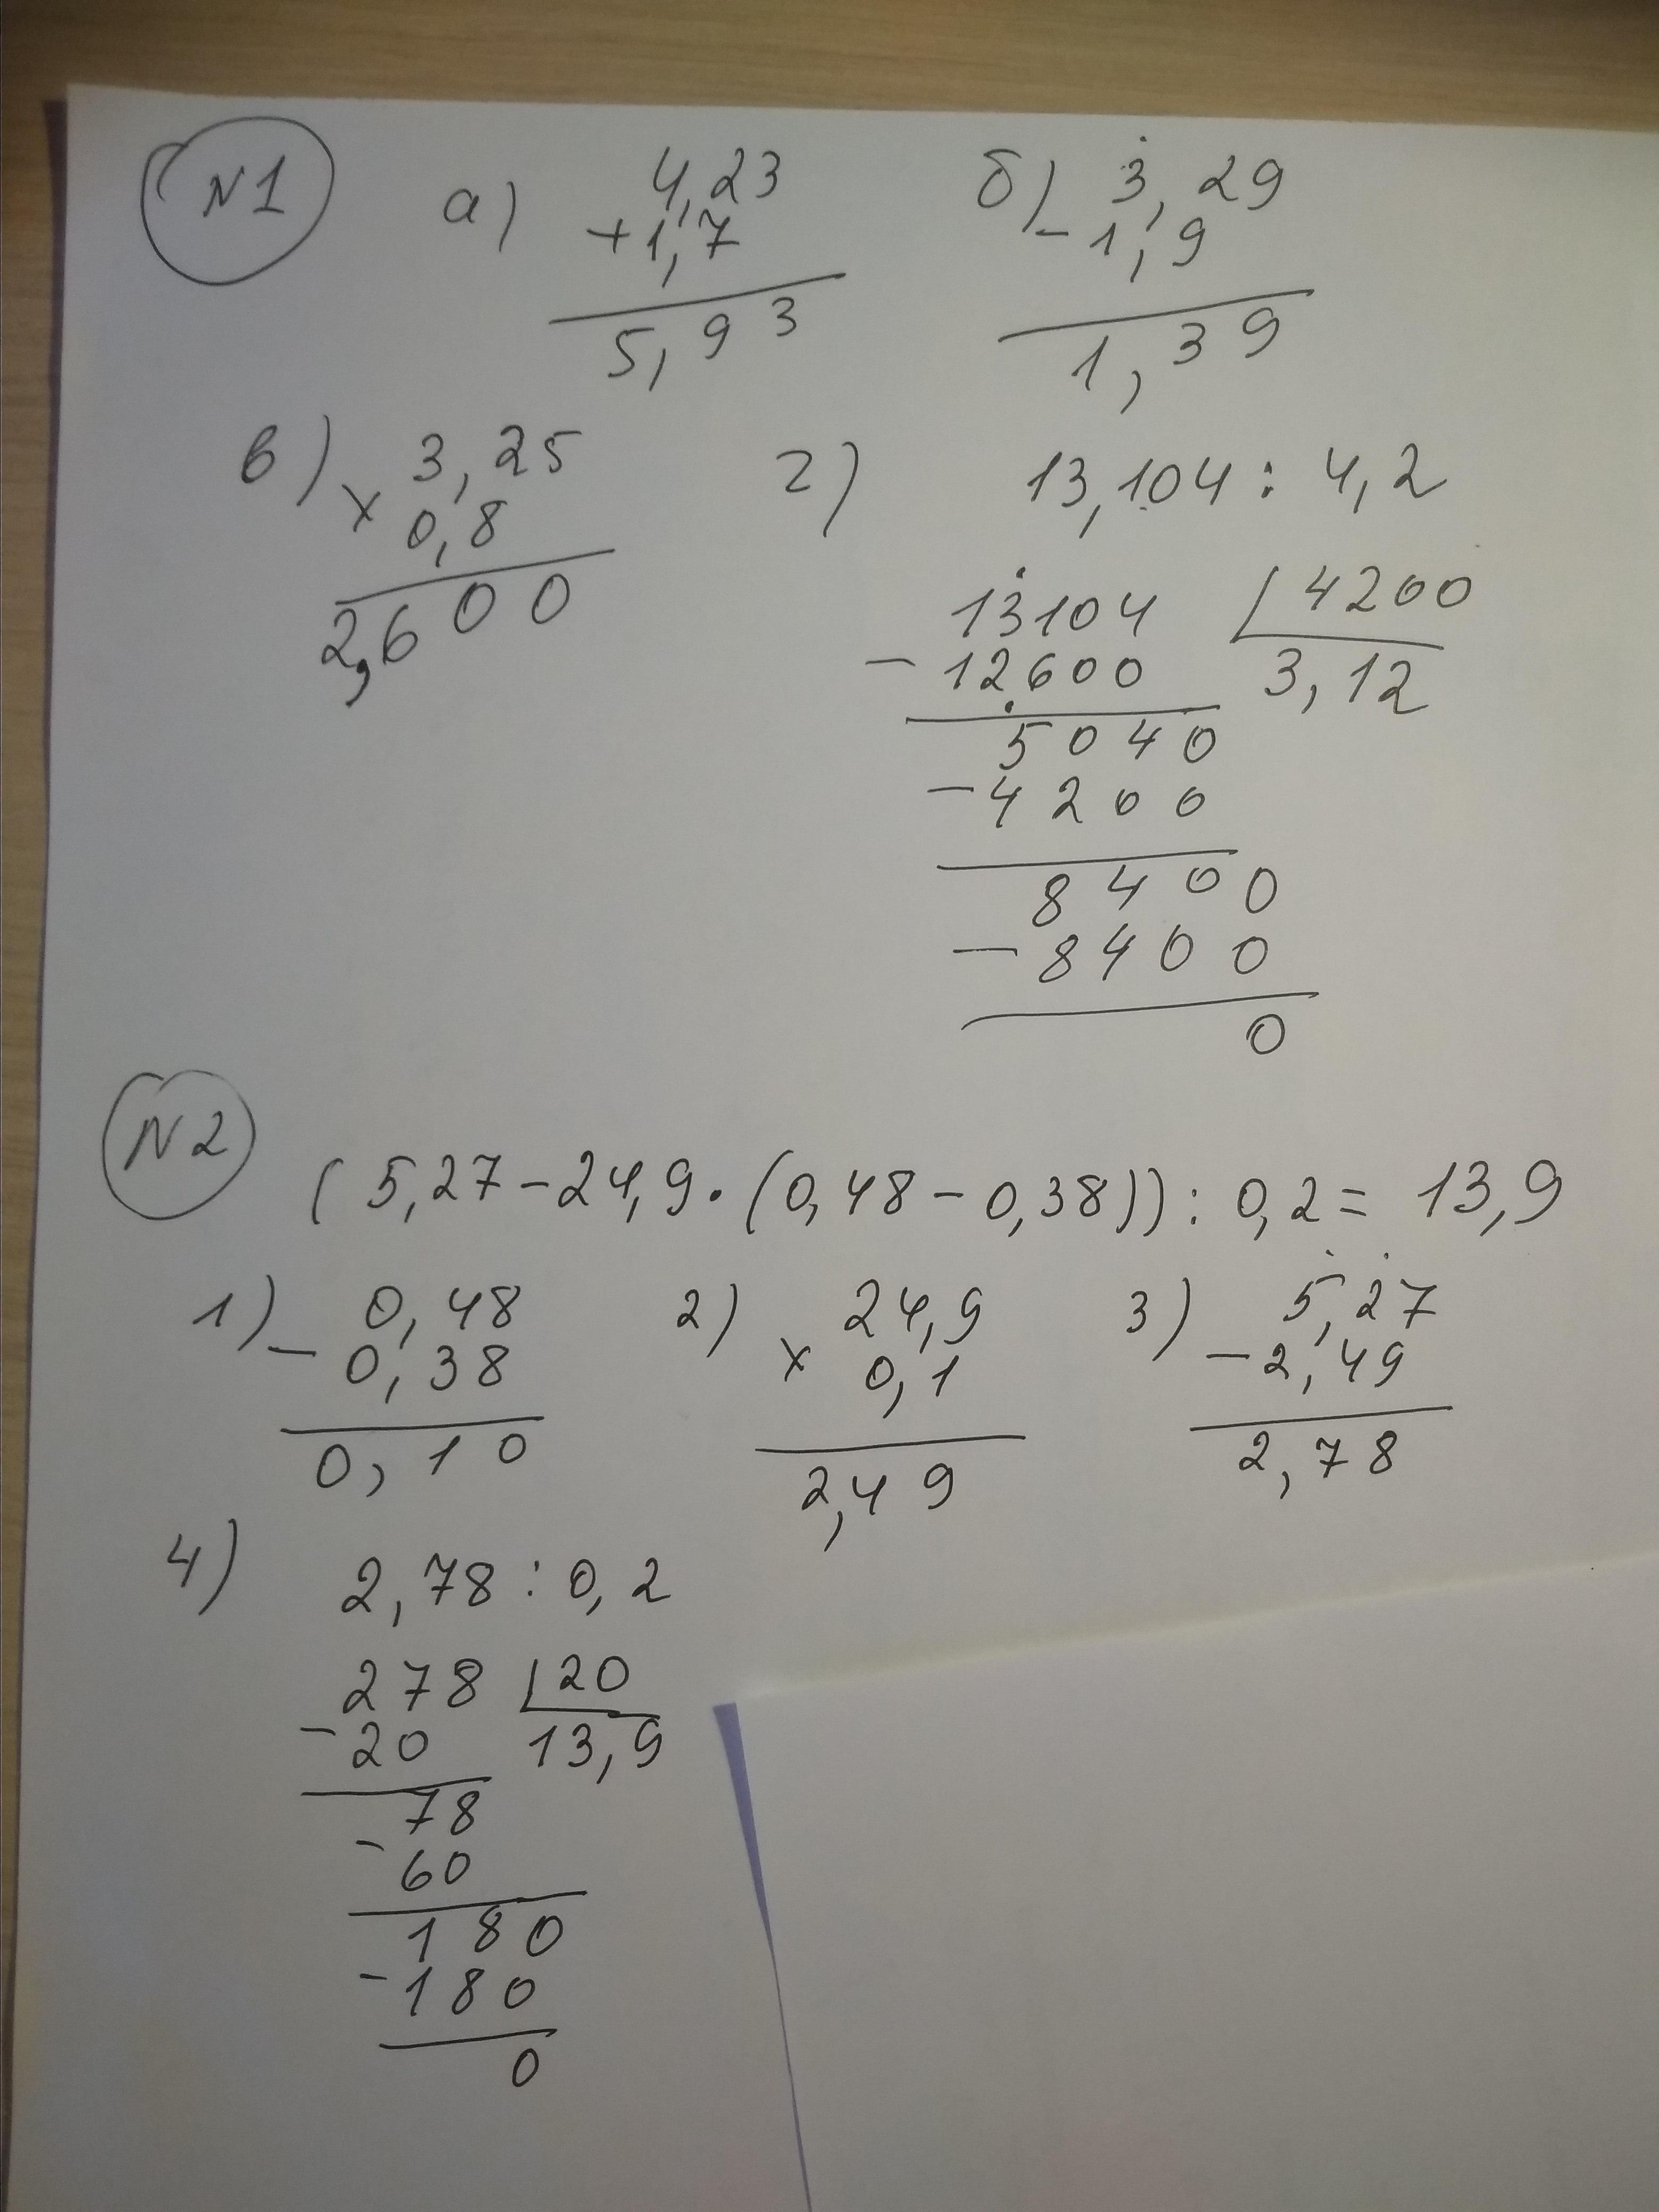 N1
а) 4,23
+1,7
5,93
б) 3,29
-1,9
1,39
в) 3,25
x 0,8
2,600
г) 13,104 : 4,2
13104 4200
-12600 3,12
5040
-4200
8400
-8400
0
N2
(5,27-24,9·(0,48-0,38)):0,2=13,9
1) 0,48
-0,38
0,10
2) 24,9
x 0,1
2,49
3) 5,27
-2,49
2,78
4) 2,78 : 0,2
278 20
-20 13,9
78
-60
180
-180
0